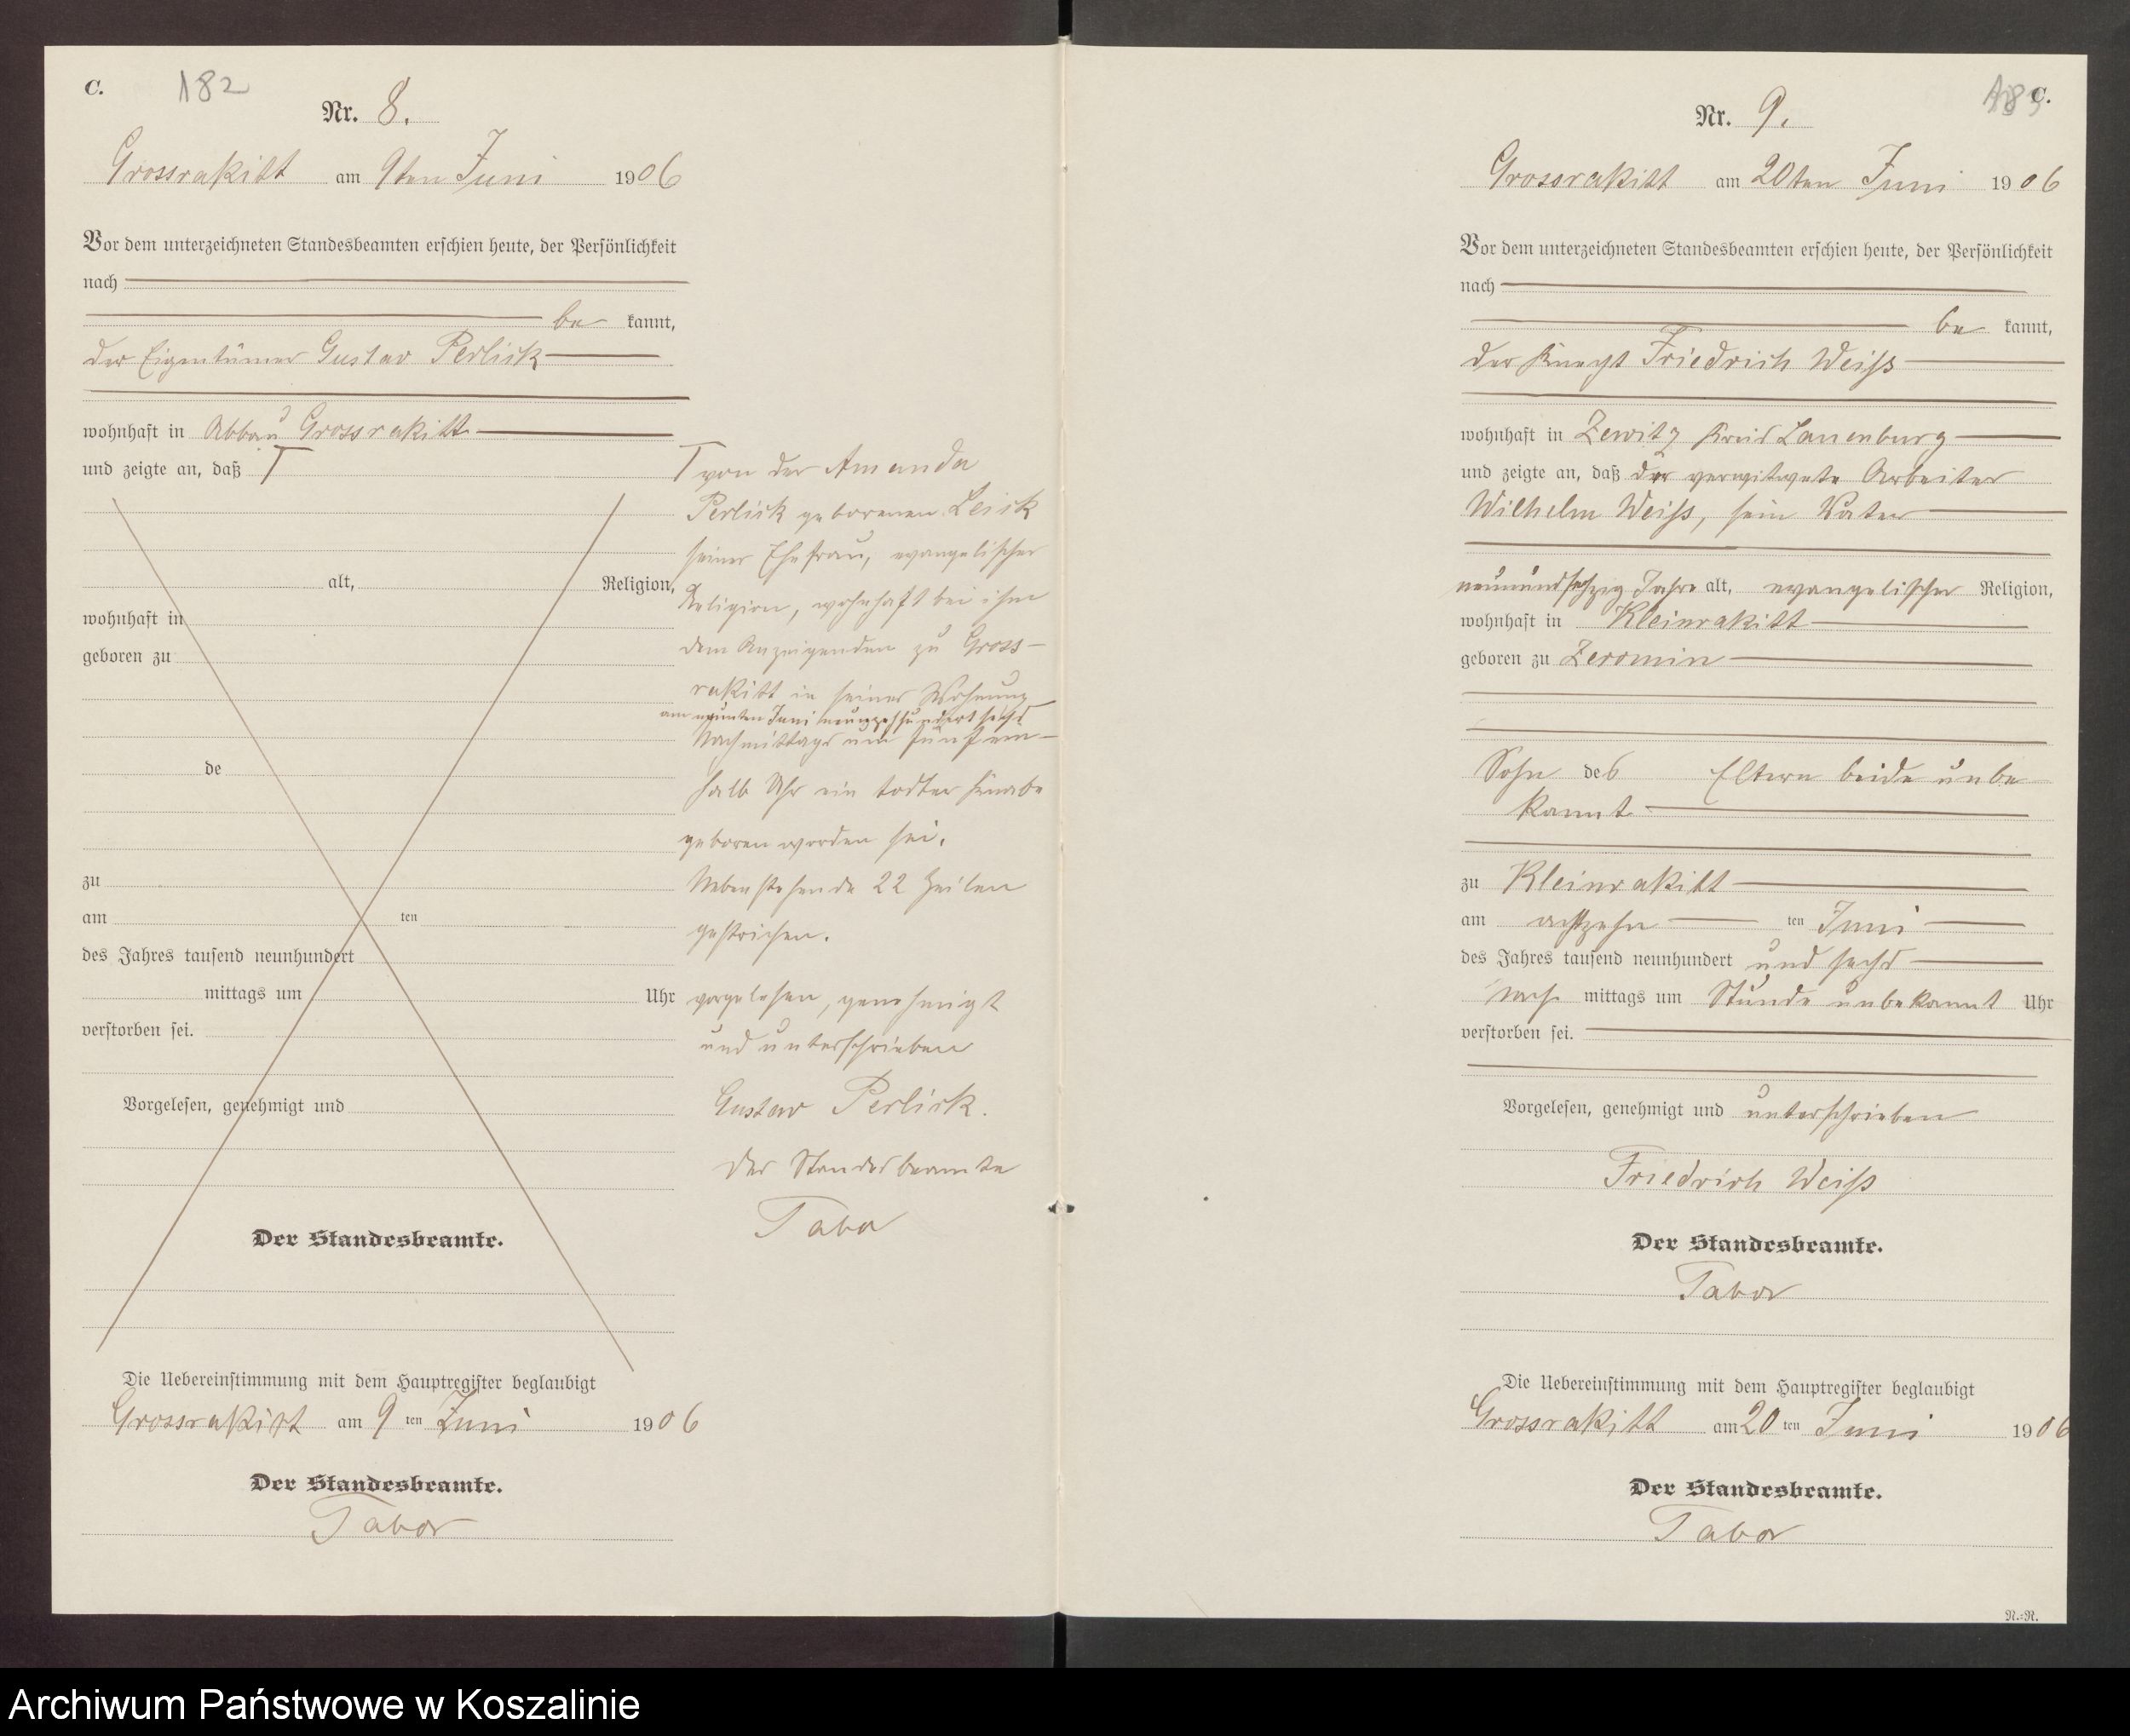 C. 182
Nr. 8.
Grossrakitt am 9ten Juni 1906
Vor dem unterzeichneten Standesbeamten erschien heute, der Persönlichkeit
nach
be kannt,
der Eigentümer Gustav Perlick
wohnhaft in Abbau Grossrakitt
und zeigte an, daß T
alt, Religion,
wohnhaft in
geboren zu
de
zu
am ten
des Jahres tausend neunhundert
mittags um Uhr
verstorben sei.
Vorgelesen, genehmigt und
Der Standesbeamte.
Die Uebereinstimmung mit dem Hauptregister beglaubigt
Grossrakitt am 9 ten Juni 1906
Der Standesbeamte.
Tabor
T von der Amanda
Perlick geborenen Leick
seiner Ehefrau, evangelischer
Religion, wohnhaft bei ihm
dem Anzeigenden zu Gross-
rakitt in seiner Wohnung
am neunten Juni neunzehhundert sechs
Nachmittags um fünf ein-
halb Uhr ein todter Knabe
geboren worden sei.
Nebenstehende 22 Zeilen
gestrichen.
vorgelesen, genehmigt
und unterschrieben
Gustav Perlick.
Der Standesbeamte
Tabor
C.
Nr. 9.
Grossrakitt am 20ten Juni 1906
Vor dem unterzeichneten Standesbeamten erschien heute, der Persönlichkeit
nach
be kannt,
der Knecht Friedrich Weiß
wohnhaft in Zewitz Kreis Lauenburg
und zeigte an, daß der verwitwete Arbeiter
Wilhelm Weiß, sein Vater
neunundsechzig Jahre alt, evangelischer Religion,
wohnhaft in Kleinrakitt
geboren zu Zeromin
Sohn des Eltern beide unbe
kannt
zu Kleinrakitt
am achtzehn ten Juni
des Jahres tausend neunhundert und sechs
Nach mittags um Stunde unbekannt Uhr
verstorben sei.
Vorgelesen, genehmigt und unterschrieben
Friedrich Weiß
Der Standesbeamte.
Tabor
Die Uebereinstimmung mit dem Hauptregister beglaubigt
Grossrakitt am 20 ten Juni 1906
Der Standesbeamte.
Tabor
N.-N.
Archiwum Państwowe w Koszalinie